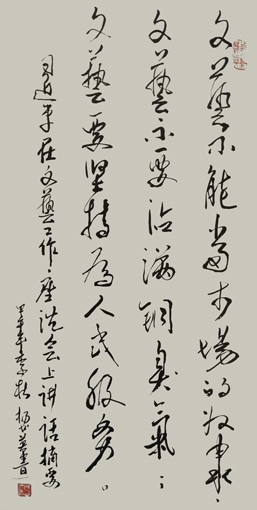 文艺不能当市场的奴隶，
文艺不要沾满铜臭气；
文艺要坚持为人民服务。
习近平在文艺工作座谈会上讲话摘要